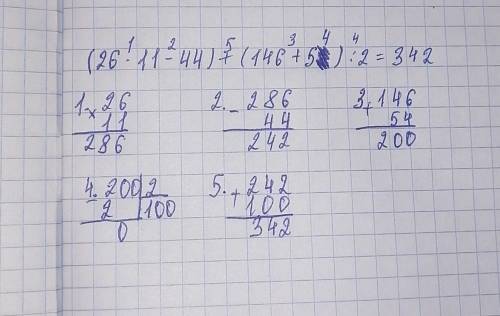 (26 · 11 - 44) + (146 + 54) : 2 = 342
1. × 26
11
286
2. - 286
44
242
3. + 146
54
200
4. 200 | 2
2 | 100
0
5. + 242
100
342